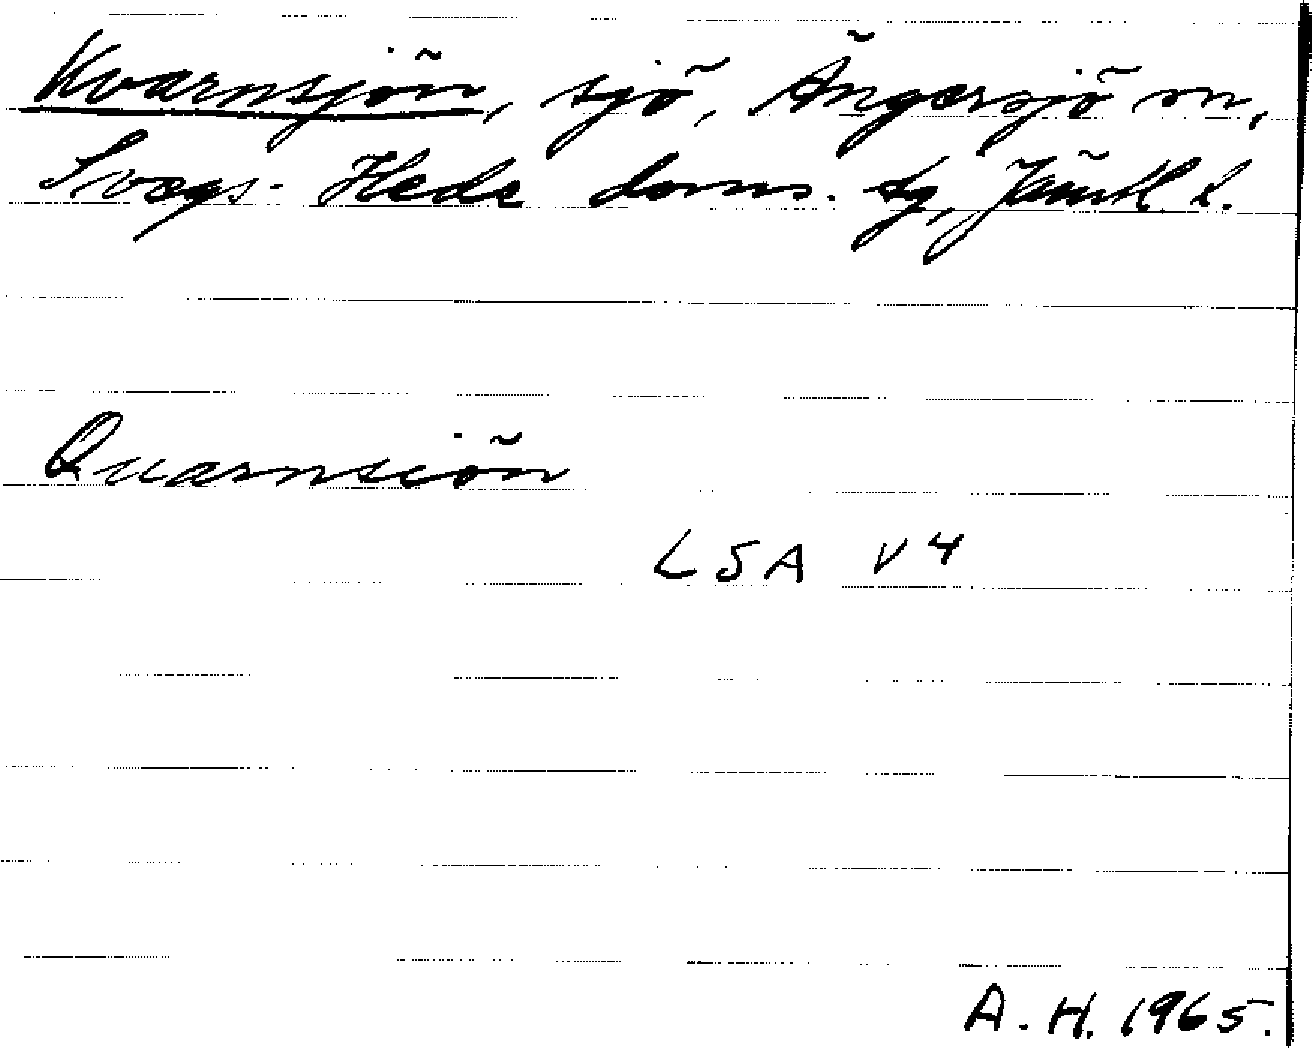 Kvarnsjön, sjö, Ängersjö sn,
Svegs- Hede doms. tg, Jämtl. l.
Quarnsiön
LSA V4
A. H. 1965.